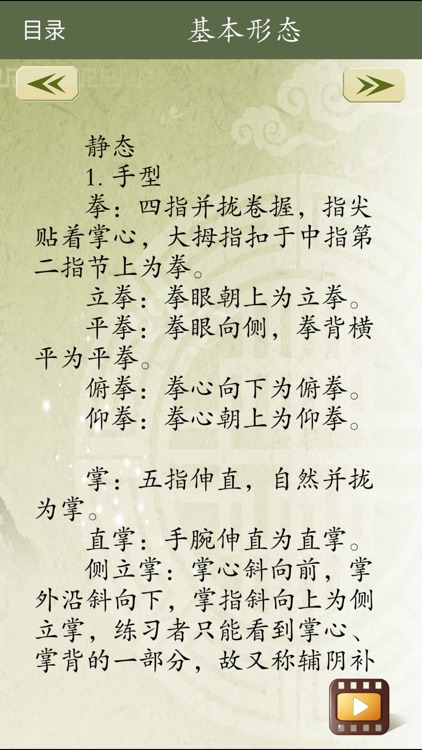 目录 基本形态
静态
1. 手型
拳：四指并拢卷握，指尖
贴着掌心，大拇指扣于中指第
二指节上为拳。
立拳：拳眼朝上为立拳。
平拳：拳眼向侧，拳背横
平为平拳。
俯拳：拳心向下为俯拳。
仰拳：拳心朝上为仰拳。
掌：五指伸直，自然并拢
为掌。
直掌：手腕伸直为直掌。
侧立掌：掌心斜向前，掌
外沿斜向下，掌指斜向上为侧
立掌，练习者只能看到掌心、
掌背的一部分，故又称辅阴补